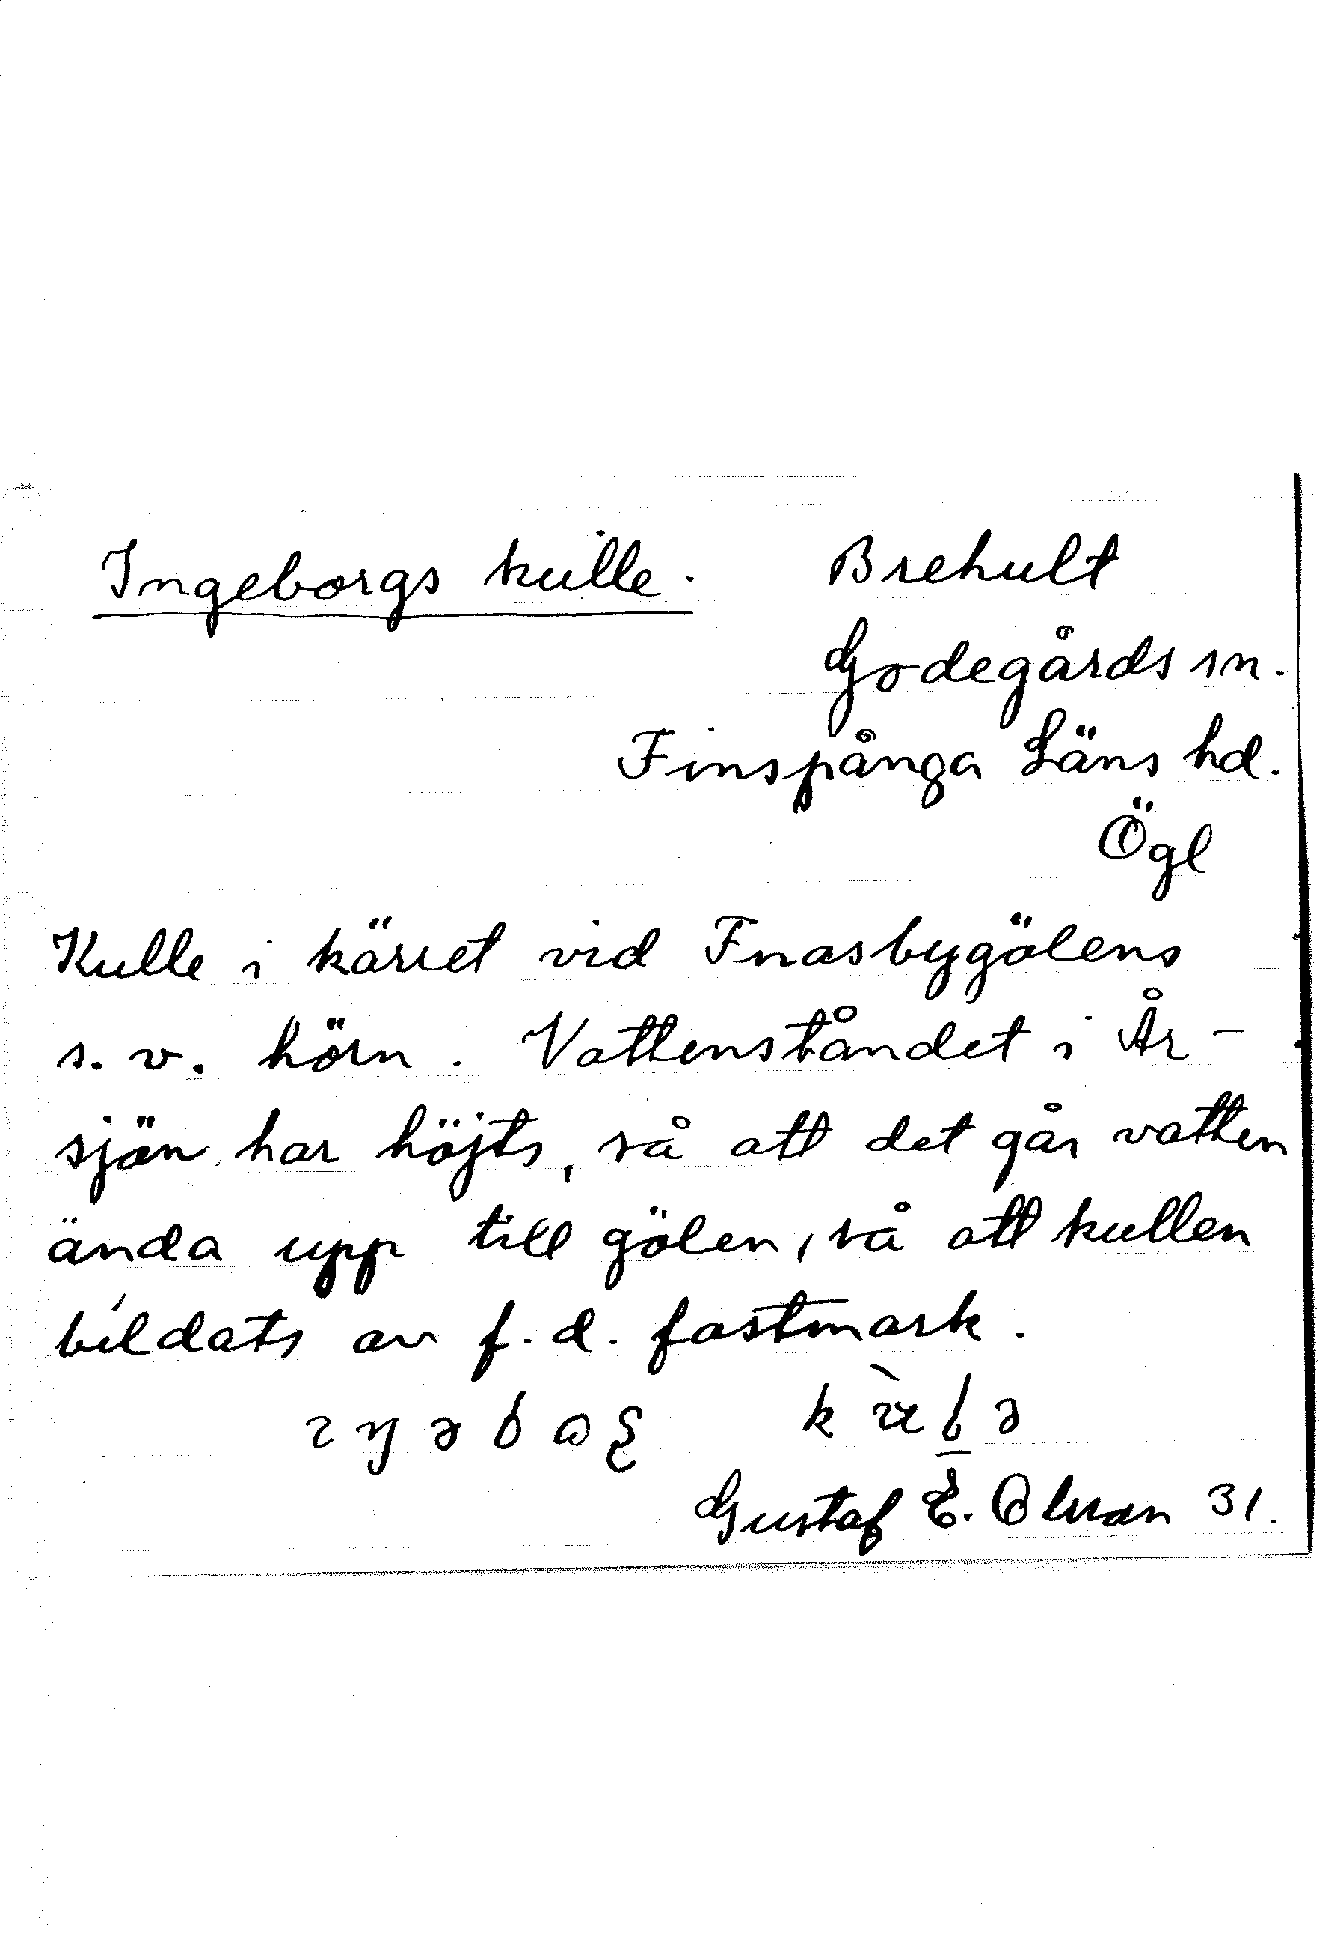 Ingeborgs kulle. Brehult
Godegårds sn.
Finspånga Läns hd.
Ögl
Kulle i kärret vid Fnasbygölens
s. v. hörn. Vattenståndet i År-
sjön har höjts, så att det går vatten
ända upp till gölen, så att kullen
bildats av f. d. fastmark.
Gustaf E. Olsson 31.